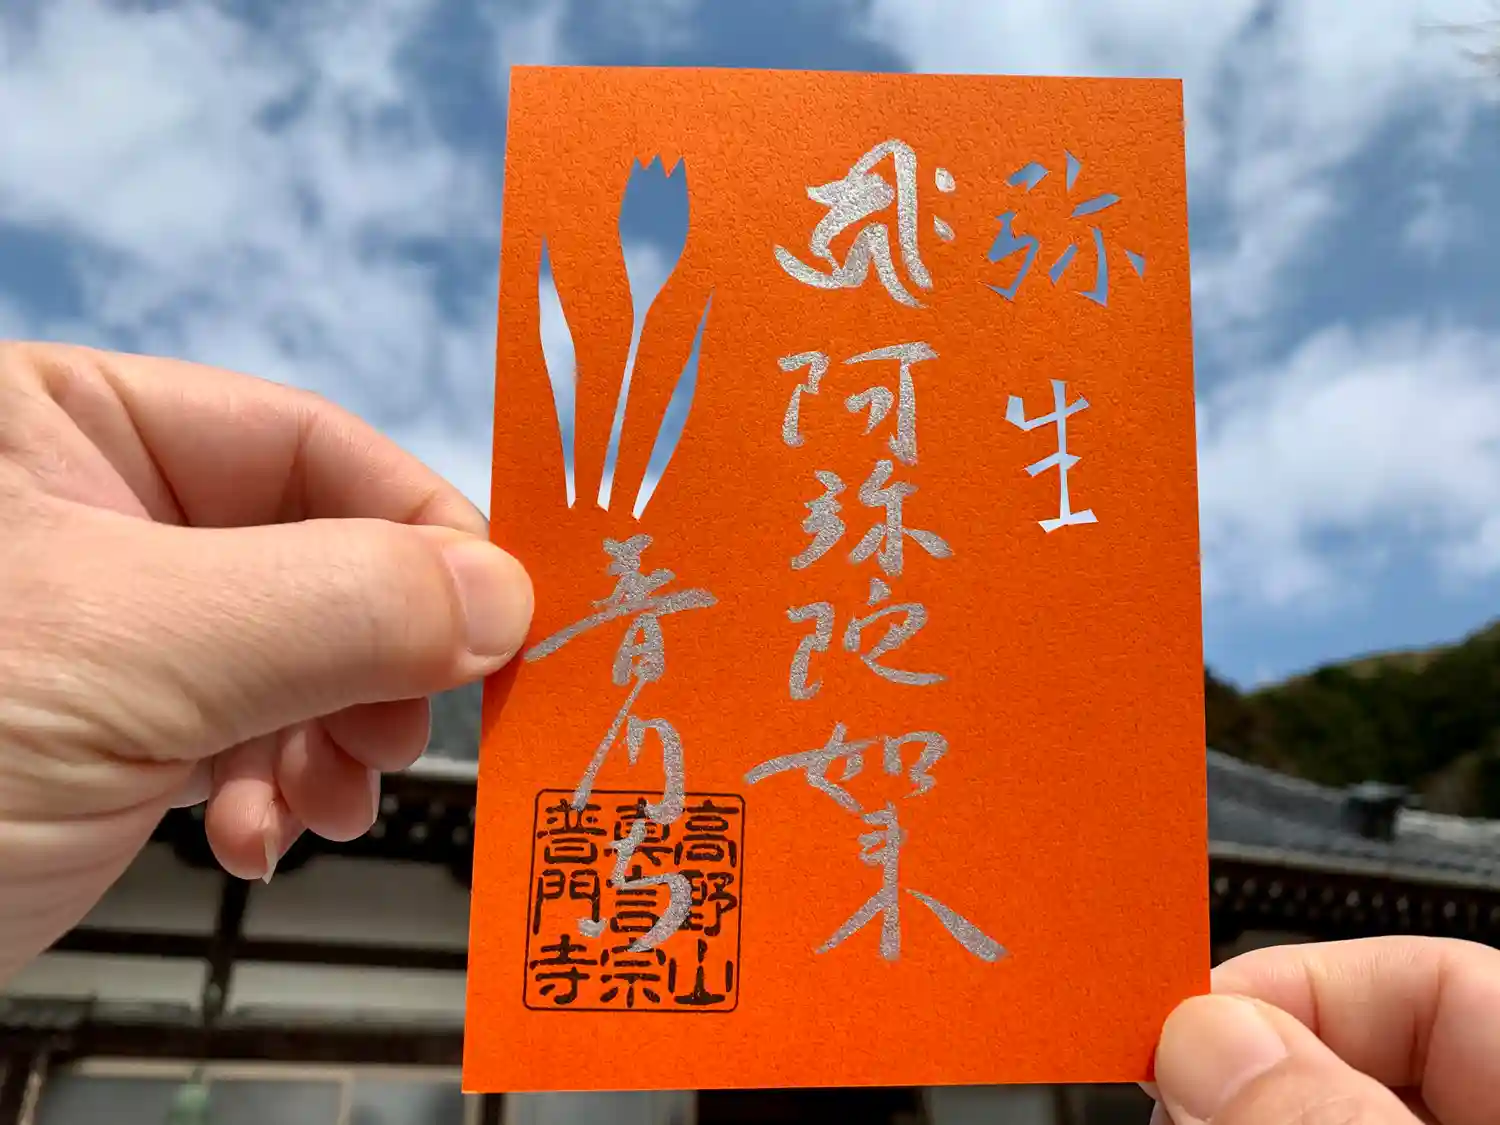 弥生
𑖮𑖿𑖨𑖱𑖾 阿弥陀如来
普門寺
高野山
真言宗
普門寺